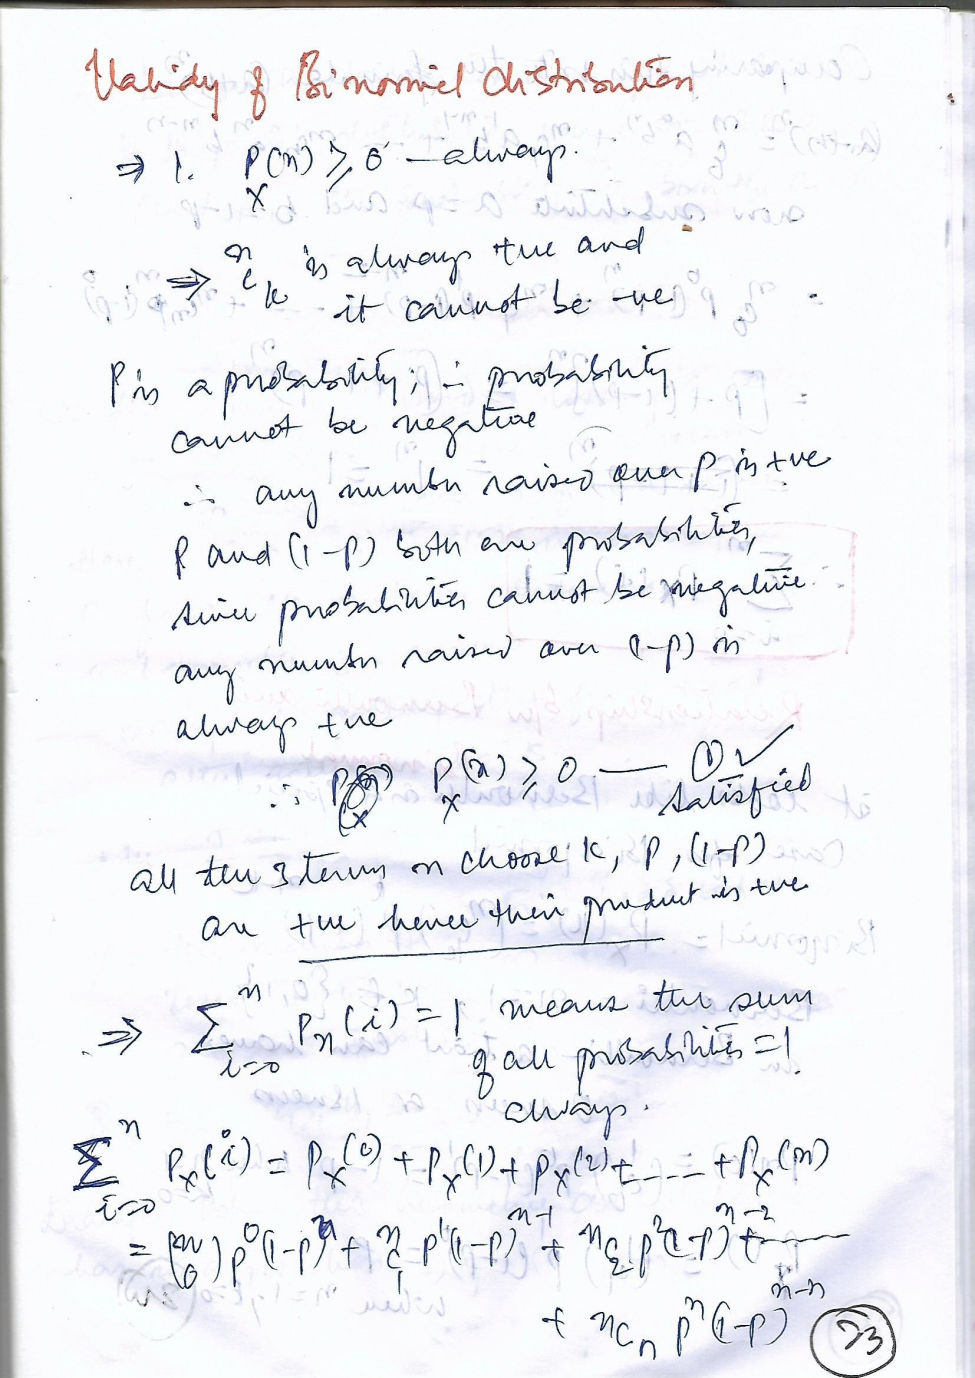 Validy of Binomial distribution
⇒ 1. P_X(n) ≥ 0 — always.
⇒ ⁿC_k is always +ve and
it cannot be -ve
P is a probability; ∴ probability
cannot be negative
∴ any number raised over P is +ve
P and (1-P) both are probabilities,
since probabilities cannot be negative
any number raised over (1-P) is
always +ve
∴ P_X(x) ≥ 0 — ① ✓
satisfied
all the 3 terms n choose k, P, (1-P)
are +ve hence their product is +ve
⇒ Σ_{i=0}^{n} P_n(i) = 1 means the sum
of all probabilities = 1
always.
Σ_{i=0}^{n} P_X(i) = P_X(0) + P_X(1) + P_X(2) + ---- + P_X(n)
= (n 0) p⁰(1-p)ⁿ + ⁿC₁ p¹(1-p)ⁿ⁻¹ + ⁿC₂ p²(1-p)ⁿ⁻² + ------
+ ⁿCₙ pⁿ(1-p)ⁿ⁻ⁿ
23